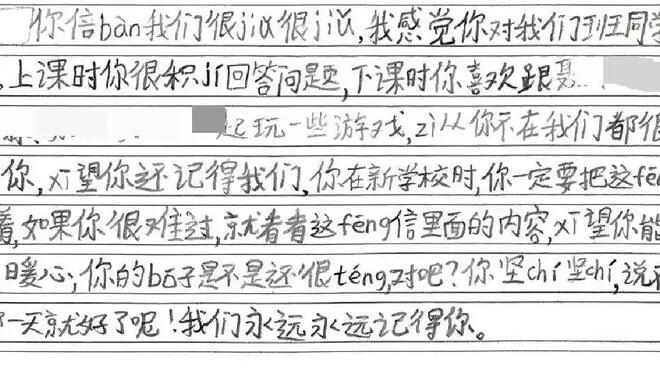 你信bàn我们很jiǔ很jiǔ,我感觉你对我们班同学
,上课时你很积jí回答问题,下课时你喜欢跟聂...
起玩一些游戏,zì从你不在我们都很
你,xī望你还记得我们,你在新学校时,你一定要把这fēng
着,如果你很难过,就看看这fēng信里面的内容,xī望你能
暖心,你的bó子是不是还很téng,对吧?你坚chí坚chí,说
一天就好了呢!我们永远永远记得你。